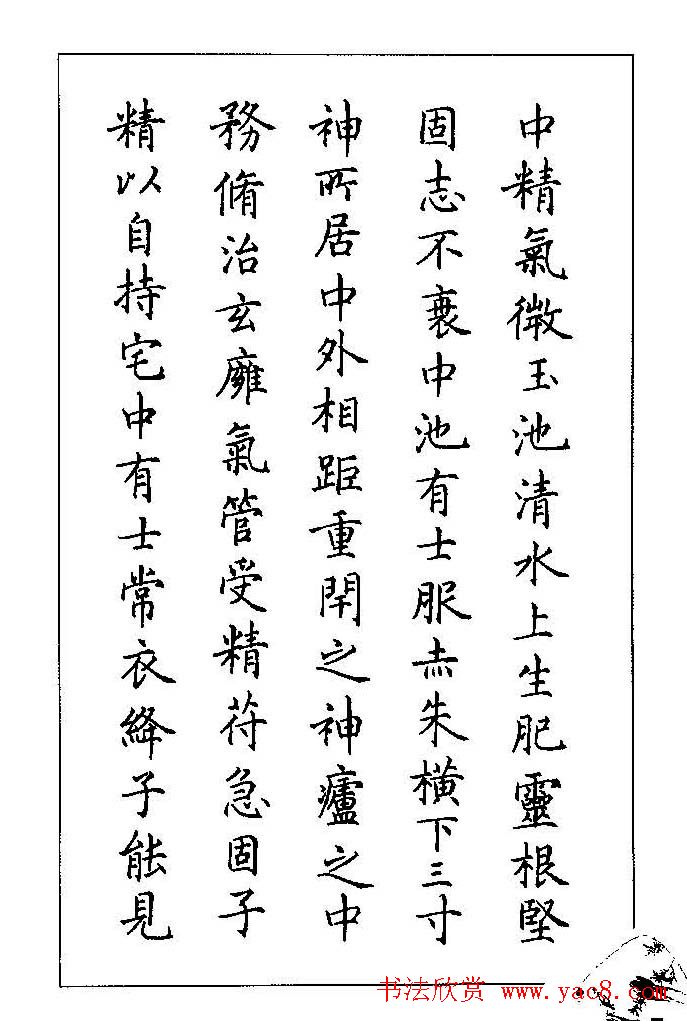 中精氣微玉池清水上生肥靈根堅
固志不衰中池有士服赤朱横下三寸
神所居中外相距重閇之神廬之中
務脩治玄癰氣管受精苻急固子
精以自持宅中有士常衣絳子能見
书法欣赏 www.yac8.com